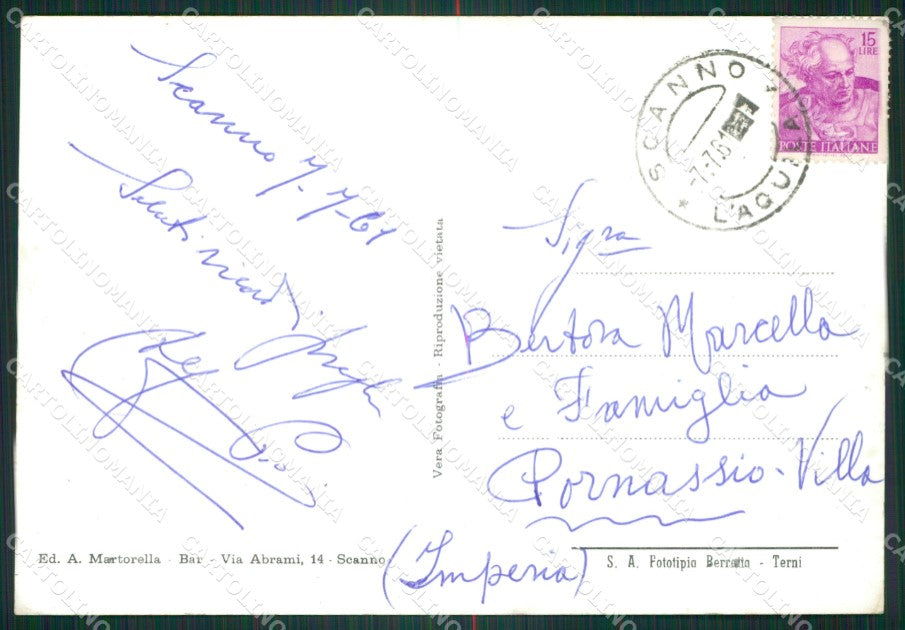 Scanno 7-7-61
Saluti ricordi
15
LIRE
POSTE ITALIANE
SCANNO
7.7.61
L'AQUILA
Vera Fotografia - Riproduzione vietata
Sigra
Bertora Marcella
e Famiglia
Pornassio-Villa
(Imperia)
Ed. A. Martorella - Bar - Via Abrami, 14 - Scanno
S. A. Fototipia Berretta - Terni
CARTOLINOMANIA